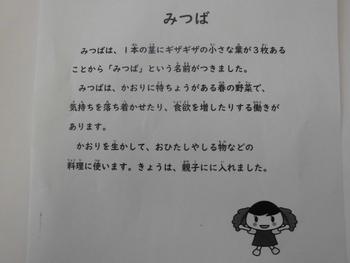 みつば
みつばは、1本の茎にギザギザの小さな葉が3枚ある
ことから「みつば」という名前がつきました。
みつばは、かおりに特ちょうがある春の野菜で、
気持ちを落ち着かせたり、食欲を増したりする働きが
あります。
かおりを生かして、おひたしやしる物などの
料理に使います。きょうは、親子にに入れました。